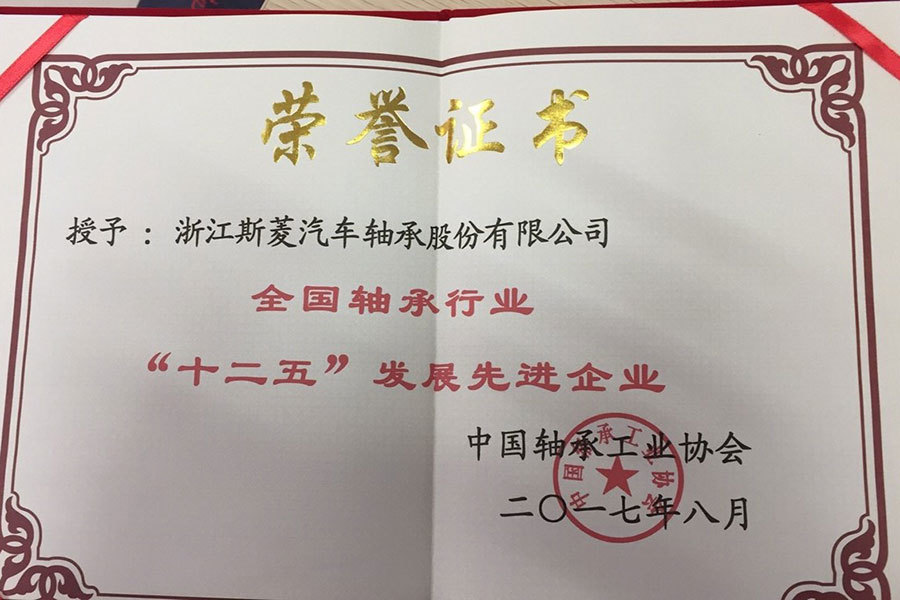 荣誉证书
授予：浙江斯菱汽车轴承股份有限公司
全国轴承行业
“十二五”发展先进企业
中国轴承工业协会
二〇一七年八月
中国轴承工业协会